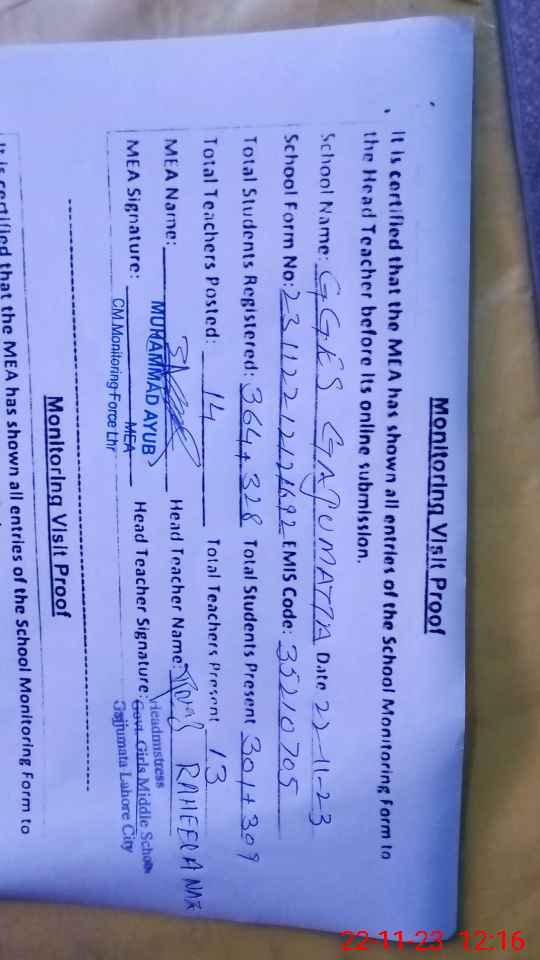 Monitoring Visit Proof
It is certified that the MEA has shown all entries of the School Monitoring Form to
the Head Teacher before its online submission.
School Name: GGES GAJUMATTA Date 22-11-23
School Form No: EMIS Code: 35210705
Total Students Registered: 364+328 Total Students Present 301+309
Total Teachers Posted: 14 Total Teachers Present 13
MEA Name: Head Teacher Name: RAHEELA NAZ
MUHAMMAD AYUB
MEA
MEA Signature: Head Teacher Signature:
CM.Monitoring Force Lhr
Headmistress
Govt. Girls Middle School
Gajjumata Lahore City
Monitoring Visit Proof
It is certified that the MEA has shown all entries of the School Monitoring Form to
22-11-23 12:16